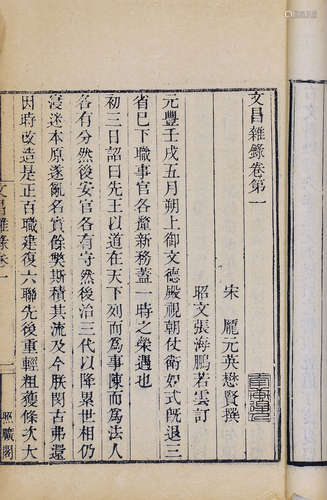 文昌雜錄卷第一
宋 龐元英懋賢撰
昭文張海鵬若雲訂
元豐壬戌五月朔上御文德殿視朝仗衛如式既退三
省巳下職事官各釐新務蓋一時之榮遇也
初三日詔曰先王以道在天下列而為事陳而為法人
各有分然後安官各有守然後治三代以降累世相仍
寖迷本原遂亂名實餘獘斯積其流及今朕閔古弗還
因時改造是正百職建復六聯先後重輕粗獲條次大
文昌雜錄卷一
照曠閣